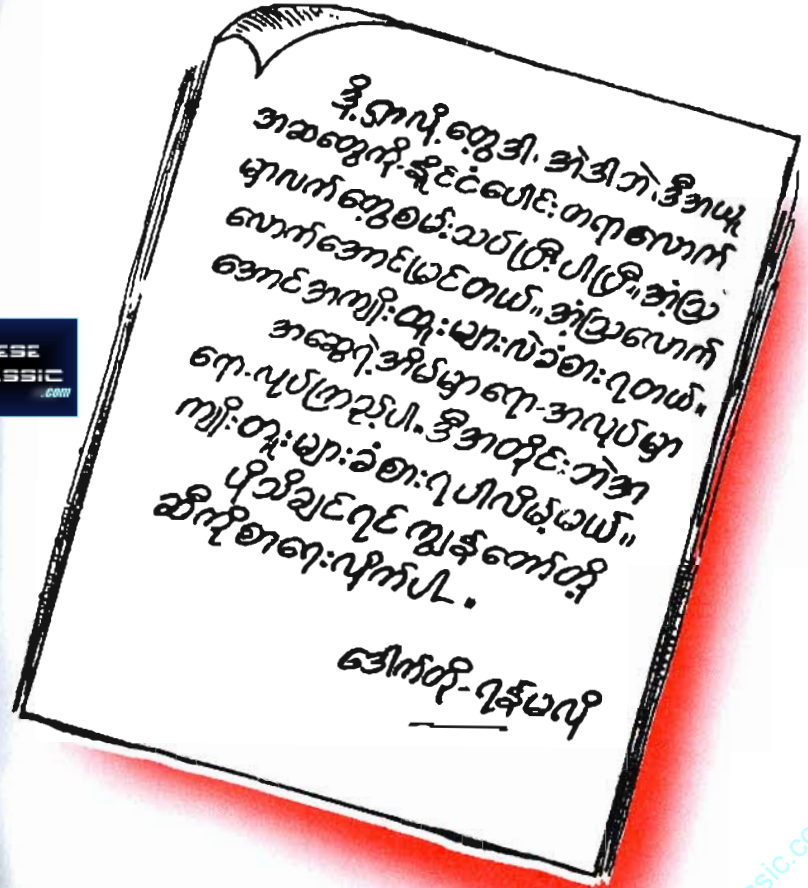 ဒို့ရှာလို့တွေ့ဒါ၊ အဲဒါဘဲ၊ ဒီအယူ
အဆတွေကို-နိုင်ငံပေါင်းတရာလောက်
မှာလက်တွေ့စမ်းသပ်ပြီးပါပြီ။ အံ့ဩ
လောက်အောင်မြင်တယ်။ အံ့ဩလောက်
အောင်အကျိုးထူးများလဲခံစားရတယ်။
အဆွေရဲ့အိမ်မှာရော-အလုပ်မှာ
ရော-လုပ်ကြည့်ပါ။ ဒီအတိုင်းဘဲအ
ကျိုးထူးများခံစားရပါလိမ့်မယ်။
ပိုသိချင်ရင် ကျွန်တော်တို့
ဆီကိုစာရေးလိုက်ပါ။
ဒေါက်တို-ရန်မလို
ESE
ASSIC
.com
sic.co